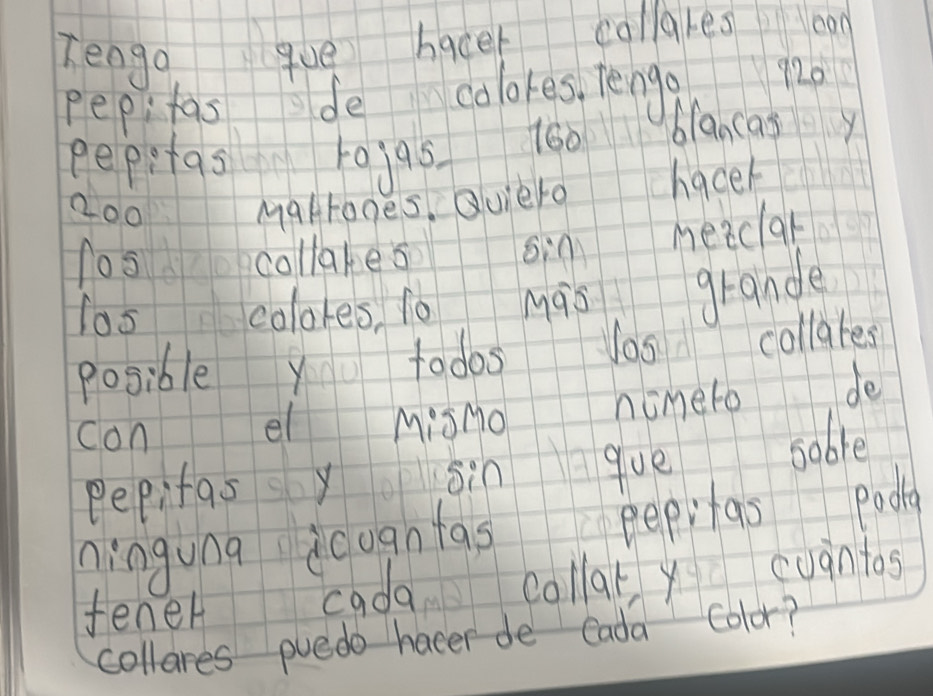 Tengo que hacer collares con
pepitas de colores. Tengo 120
pepitas rojas 160 blancas y
200 marrones. Quiero hacer
los collares sin mezclar
los colores, lo más grande
posible y todos los collares
con el mismo número de
pepitas y sin que sobre
ninguna ¿cuántas pepitas podra
tener cada collar, y cuántos
collares puedo hacer de cada color?